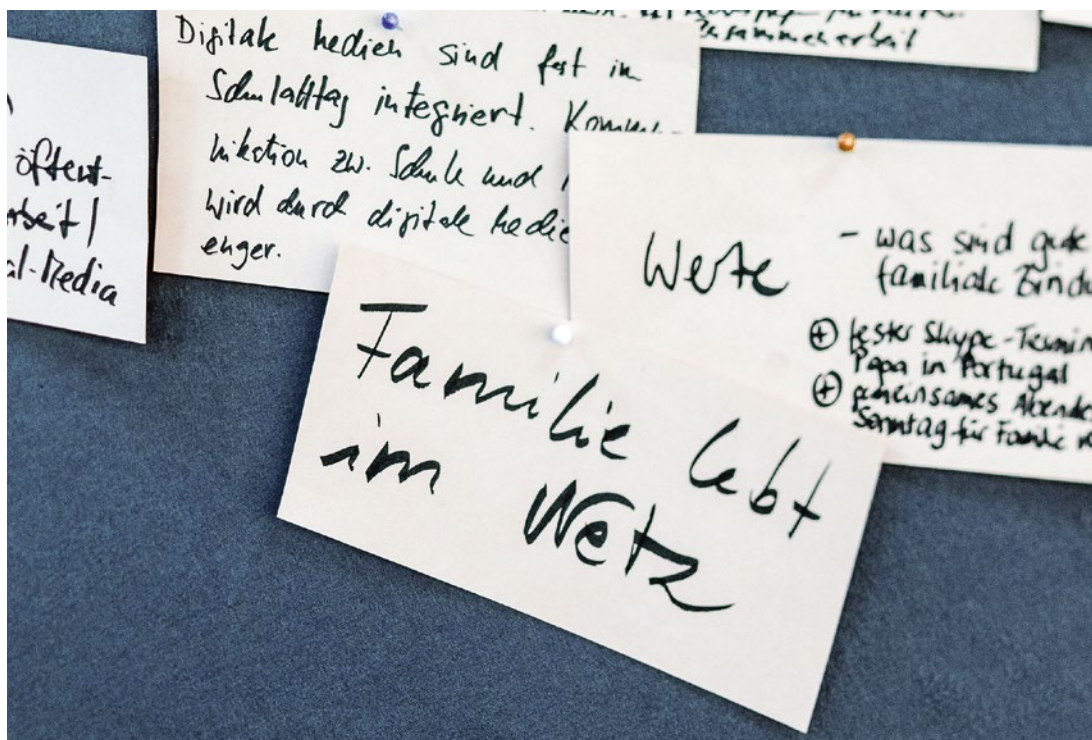 Zusammenarbeit
öffent-
rbeit /
al-Media
Digitale Medien sind fest im
Schulalltag integriert. Kommu-
nikation zw. Schule und
wird durch digitale Medie
enger.
Werte
- was sind gute
familiale Bindu
⊕ fester Skype-Termin
Papa in Portugal
⊕ gemeinsames Abende
Sonntag für Familie
Familie lebt
im Netz